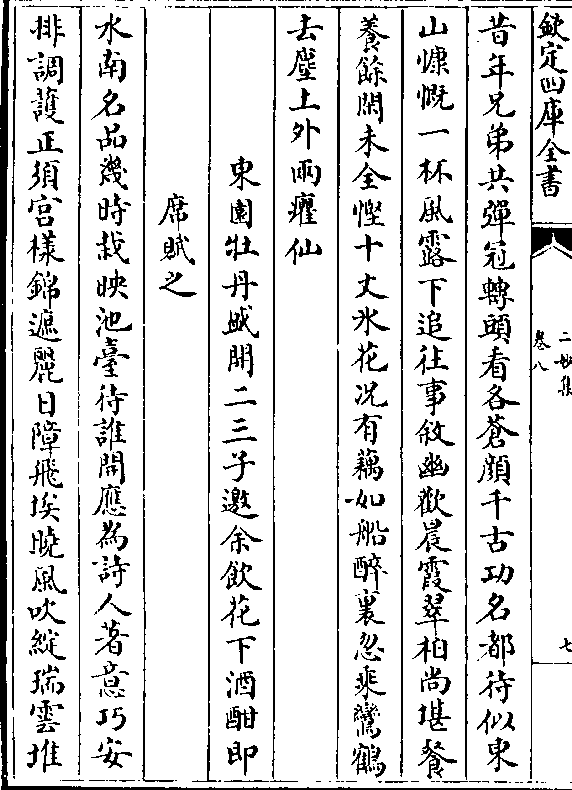 欽定四庫全書
二妙集
卷八
七
昔年兄弟共彈冠轉頭看各蒼顔千古功名都待似東
山慷慨一杯風露下追往事敘幽歡晨霞翠柏尚堪餐
養餘閑未全慳十丈氷花况有藕如船醉裏忽乗鸞鶴
去塵土外兩癯仙
東園牡丹盛開二三子邀余飲花下酒酣即
席賦之
水南名品幾時栽映池臺待誰開應為詩人著意巧安
排調䕶正須宫様錦遮麗日障飛埃曉風吹綻瑞雲堆